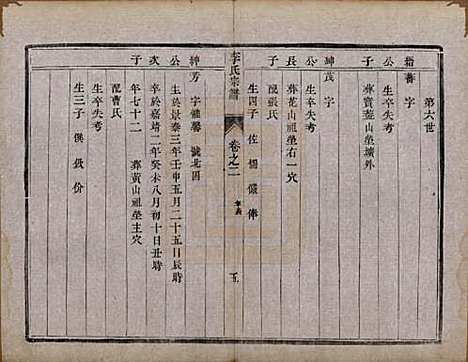 第六世
楷蕃 字
公
子
生卒失考
葬寶藍山塋壙外
紳茂 字
公
長
子
生卒失考
葬花山祖塋右一穴
配張氏
生四子 佐 儀 俸
李氏宗譜
卷之二
年表
五
紳芳 字 馨 號北園
公
次
子
生於景泰三年壬申五月二十五日辰時
卒於嘉靖二年癸未八月初十日丑時
年七十二 葬黃山祖塋主穴
配曹氏
生卒失考
生三子 價 份